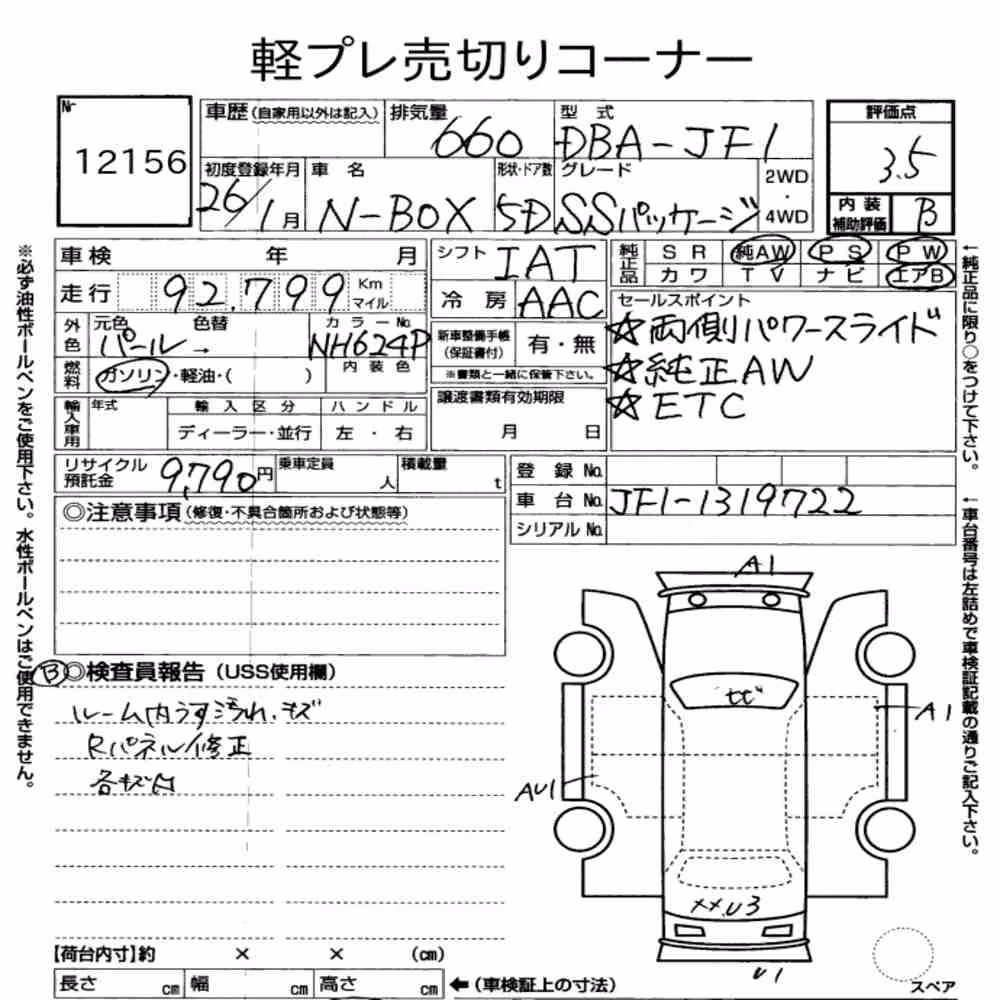 軽プレ売切りコーナー
Nr 12156
車歴(自家用以外は記入) 排気量 660 型式 DBA-JF1
評価点 3.5
初度登録年月 26/1月 車名 N-BOX 形状・ドア数 5D グレード SSパッケージ 2WD・4WD
内装補助評価 B
車検 年 月 シフト IAT
純正品 SR 純AW PS PW
カワ TV ナビ エアB
走行 92,799 Km マイル 冷房 AAC
セールスポイント
☆両側パワースライド
☆純正AW
☆ETC
外色 元色 パール→ 色替 カラーNo. NH624P
内装色
新車整備手帳(保証書付) 有・無
※書類と一緒に保管下さい。
燃料 ガソリン・軽油・( )
輸入車用 年式 輸入区分 ハンドル
ディーラー・並行 左・右
譲渡書類有効期限
月 日
リサイクル預託金 9,790円 乗車定員 人 積載量 t
登録No.
車台No. JF1-1319722
シリアルNo.
◎注意事項(修復・不具合箇所および状態等)
B ◎検査員報告(USS使用欄)
ルーム内うす汚れ、キズ
Rパネル修正
各キズ凹
A1
A1
AU1
XX.U3
U1
【荷台内寸】約 × × (cm)
長さ cm 幅 cm 高さ cm ←(車検証上の寸法)
スペア
※必ず油性ボールペンをご使用下さい。水性ボールペンはご使用できません。
←純正品に限り○をつけて下さい。
←車台番号は左詰めで車検証記載の通りご記入下さい。